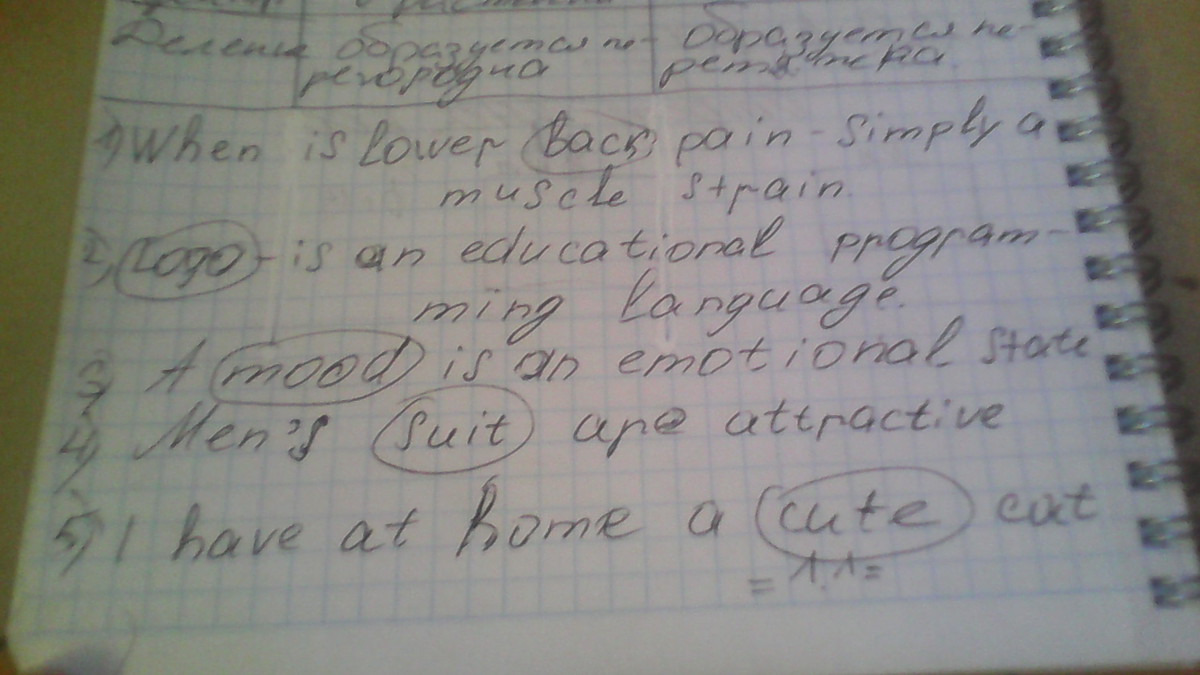 Деление образуется пе- образуется пе-
регородка ретяжка
1) When is lower back pain - simply a
muscle strain.
2) Logo - is an educational program-
ming language.
3) A mood is an emotional state
4) Men's suit are attractive
5) I have at home a cute cat
= ^.^ =